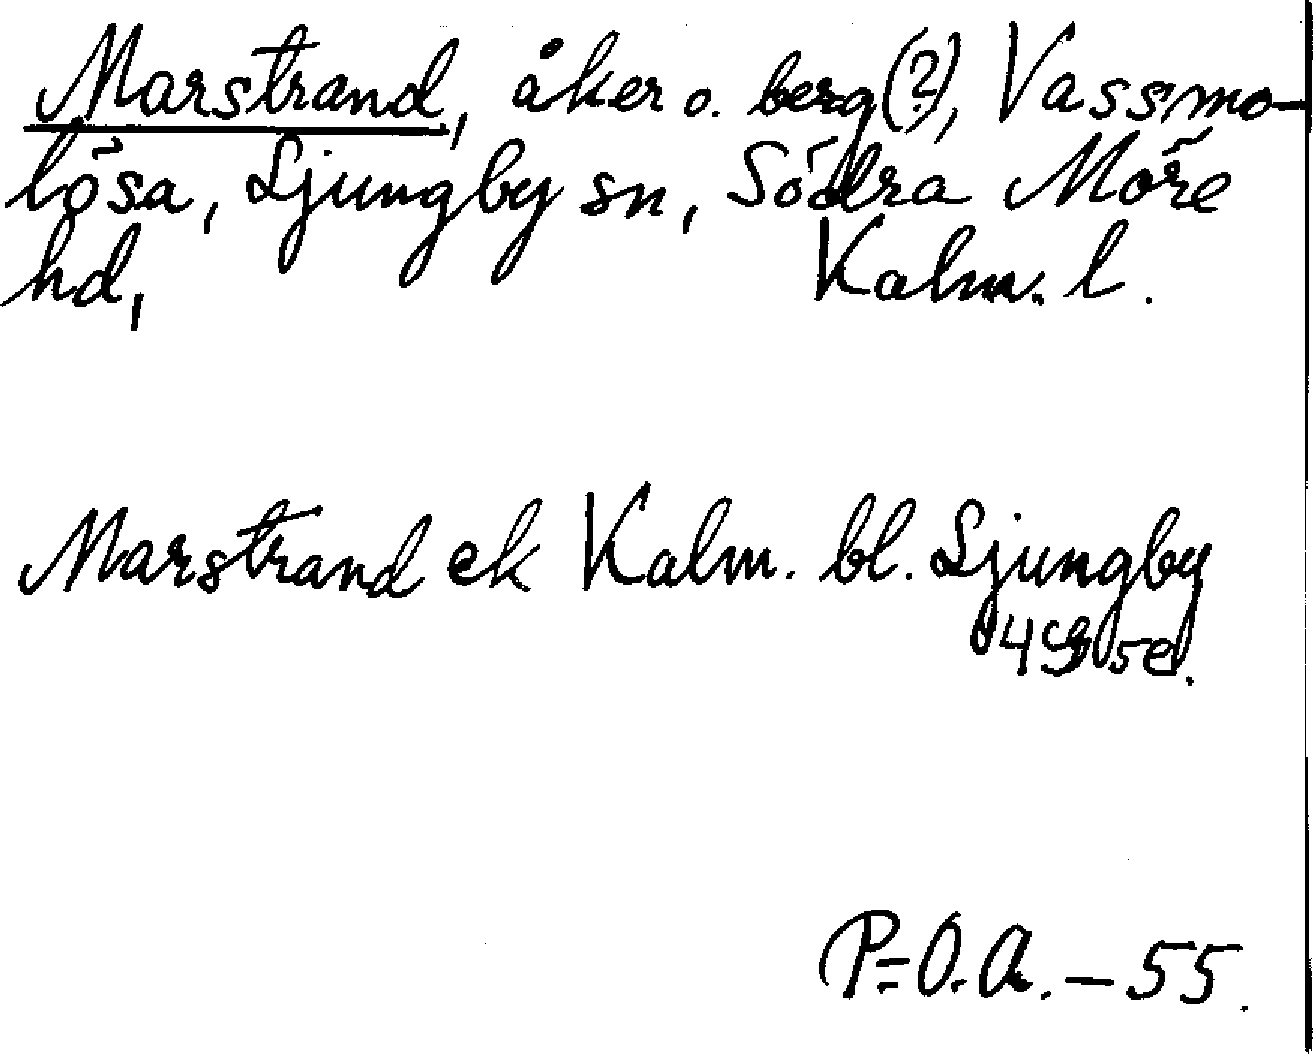 Marstrand, åker o. berg(?), Vassmo-
lösa, Ljungby sn, Södra Möre
hd, Kalm. l.
Marstrand ek Kalm. bl. Ljungby
4G5e.
P-O.A. – 55.